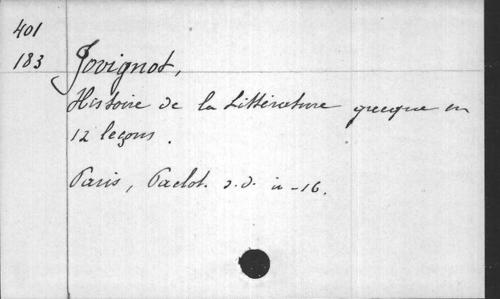 401
183
Jovignot,
Histoire de la Littérature grecque en
12 leçons.
Paris, Paclot. s. d. in-16.